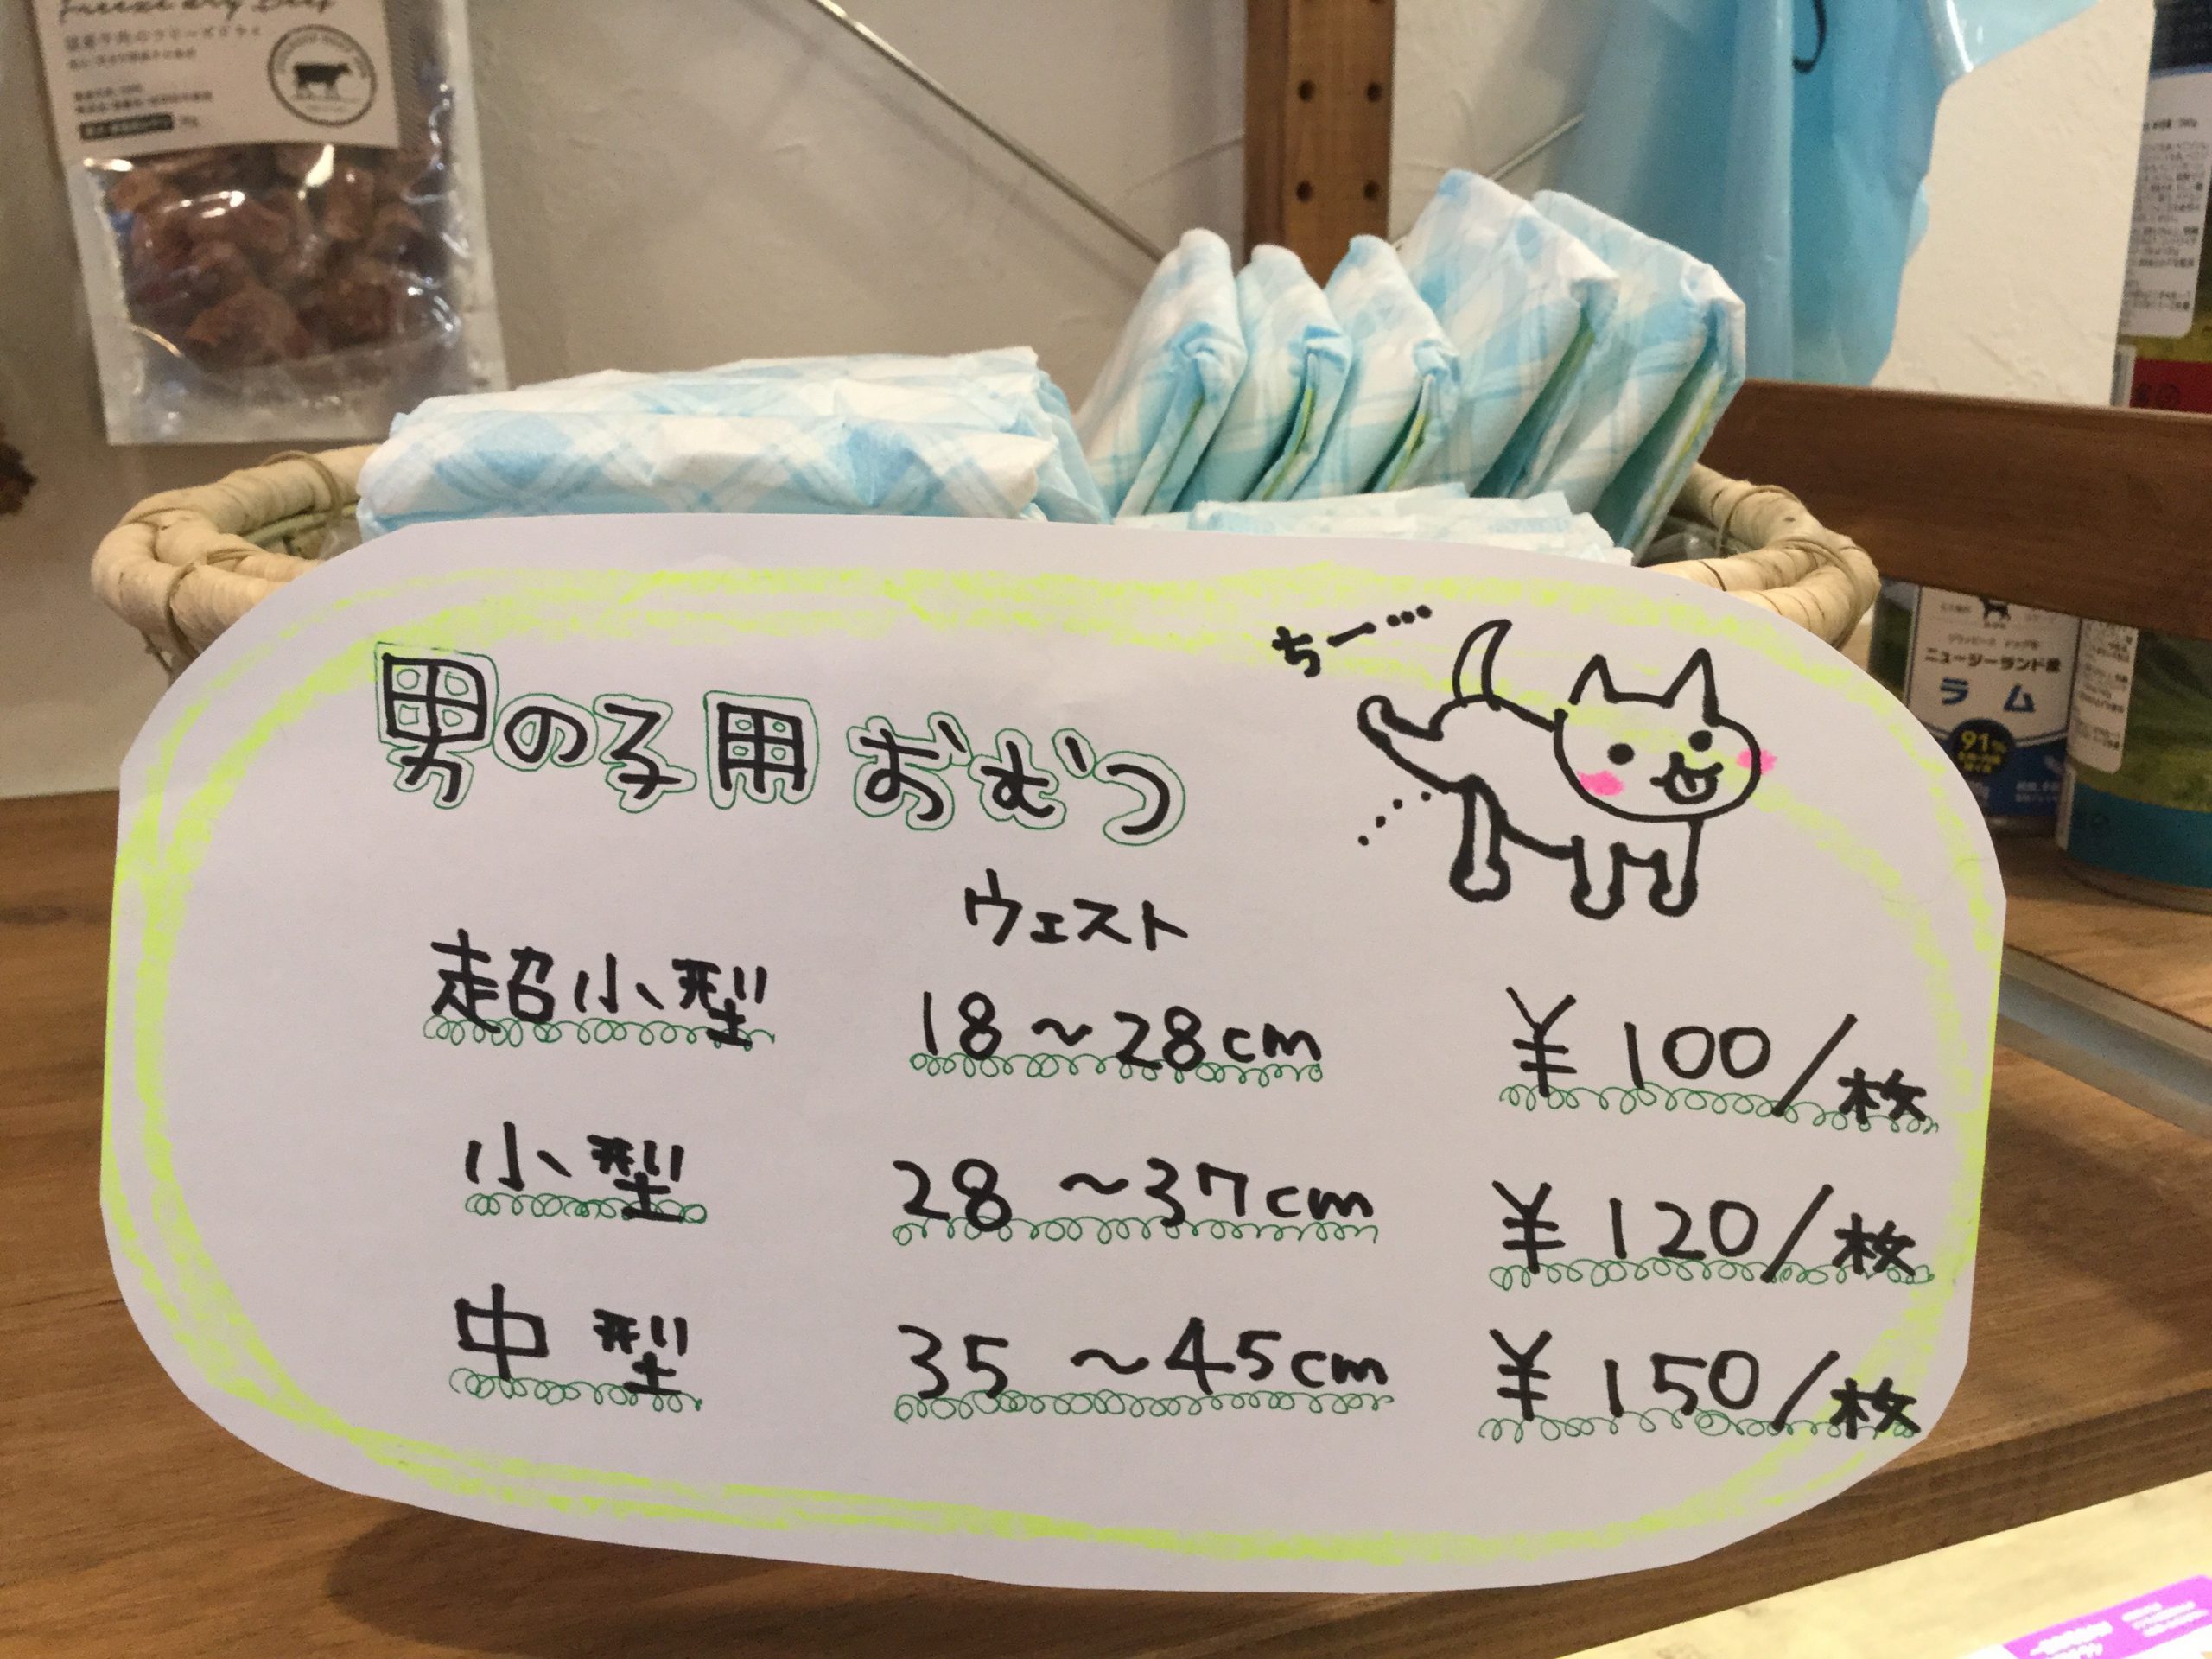 Freeze dry Beef
国産牛肉のフリーズドライ
男の子用おむつ
ちー…
ウェスト
超小型 18〜28cm ¥100/枚
小型 28〜37cm ¥120/枚
中型 35〜45cm ¥150/枚
ニュージーランド産
ラム
91%